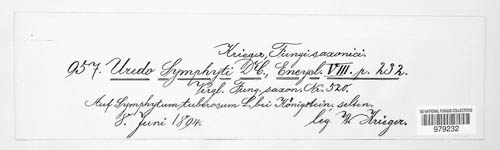 Krieger, Fungi saxonici.
957. Uredo Symphyti DC, Encycl. VIII. p. 232.
Vergl. Fung. saxon. Nr. 520.
Auf Symphytum tuberosum L. bei Königstein, selten.
5. Juni 1894. leg. W. Krieger.
US NATIONAL FUNGUS COLLECTIONS
979232